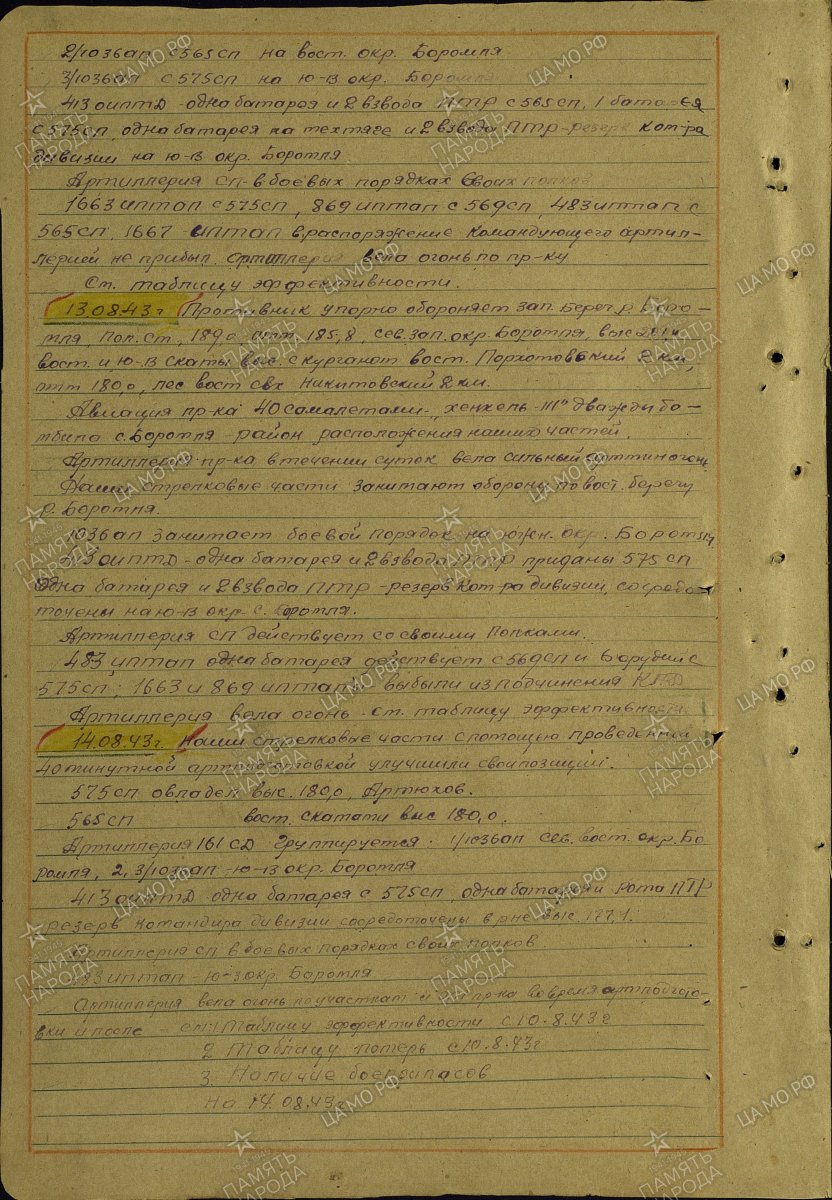 2/1036ап с 565сп на вост. окр. Боромля
3/1036ап с 575сп на ю-в окр. Боромля
413 оиптд - одна батарея и 2 взвода ПТР с 565сп, 1 батарея
с 575сп, одна батарея на техтяге и 2 взвода ПТР - резерв ком-ра
дивизии на ю-в окр. Боромля.
Артиллерия сп - в боевых порядках своих полков
1663 иптап с 575сп, 869 иптап с 569сп, 483 иптап с
565сп, 1667 иптап в распоряжение командующего артил-
лерией не прибыл. Артиллерия вела огонь по пр-ку
См. таблицу эффективности.
13.08.43г Противник упорно обороняет зап. берег р. Боро-
мля, пол. ст, 189,0 отм. 185,8, сев. зап. окр. Боромля, выс
вост. и ю-в скаты выс. с курганом вост. 2 км,
отм 180,0, лес вост свх Никитовский 2 км.
Авиация пр-ка 40 самолетами - хенкель-111" дважды бо-
мбила с. Боромля - район расположения наших частей.
Артиллерия пр-ка в течении суток вела сильный артминогонь.
Наши стрелковые части занимают оборону по вост. берегу
р. Боромля.
1036ап занимает боевой порядок на южн. окр. Боромля
413 оиптд - одна батарея и 2 взвода ПТР приданы 575 сп
Одна батарея и 2 взвода ПТР - резерв ком-ра дивизии, сосредо-
точены на ю-в окр. с. Боромля.
Артиллерия сп действует со своими полками.
483 иптап одна батарея действует с 569сп и 6 орудий с
575сп; 1663 и 869 иптапы выбыли из подчинения КАД
Артиллерия вела огонь. См. таблицу эффективности
14.08.43г. Наши стрелковые части с помощью проведенной
40 минутной артподготовкой улучшили свои позиции.
575сп овладел выс. 180,0, Артюхов.
565сп вост. скатами выс 180,0.
Артиллерия 161 СД группируется: 1/1036ап сев. вост. окр. Бо
ромля, 2, 3/1036ап - ю-в окр. Боромля
413 оиптд - одна батарея с 575сп, одна батарея и рота ПТР
резерв командира дивизии сосредоточены в р-не выс. 177,1.
Артиллерия сп в боевых порядках своих полков
483 иптап - ю-з окр. Боромля
Артиллерия вела огонь по участкам и пр-ка во время артподгото-
вки и после см 1 Таблицу эффективности с 10.8.43г
2 Таблицу потерь с 10.8.43г
3. Наличие боеприпасов
на 14.08.43г.
ПАМЯТЬ НАРОДА
ЦА МО РФ